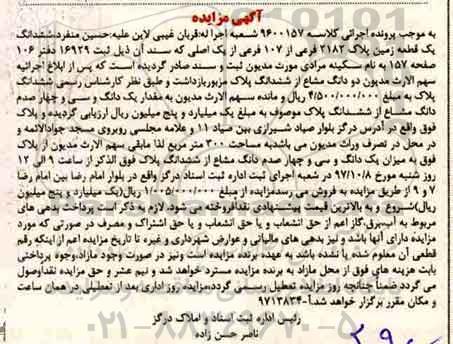 آگهی مزایده
به موجب پرونده اجرائی کلاسه ۹۶۰۰۱۵۷ شعبه اجرا له:قربان غیبی لاین علیه:حسین منفرد،ششدانگ
یک قطعه زمین پلاک ۲۱۸۲ فرعی از ۱۰۷ فرعی از یک اصلی که سند آن ذیل ثبت ۱۶۹۲۹ دفتر ۱۰۶
صفحه ۱۵۷ به نام سکینه مرادی مورث مدیون ثبت و سند صادر گردیده است که پس از ابلاغ اجرائیه
سهم الارث مدیون دو دانگ مشاع از ششدانگ پلاک مزبوربازداشت و طبق نظر کارشناس رسمی ششدانگ
پلاک به مبلغ ۴/۵۰۰/۰۰۰/۰۰۰ ریال و مانده سهم الارث مدیون به مقدار یک دانگ و سی و چهار صدم
دانگ مشاع از ششدانگ پلاک موصوف به مبلغ یک میلیارد و پنج میلیون ریال ارزیابی گردیده و پلاک
فوق واقع در آدرس درگز بلوار صیاد شیرازی بین صیاد ۱۱ و علامه مجلسی روبروی مسجد جوادالائمه و
در محل در تصرف وراث مدیون می باشدبه مساحت ۳۰۰ متر مربع لذا مابقی سهم الارث مدیون از پلاک
فوق به میزان یک دانگ و سی و چهار صدم دانگ مشاع از ششدانگ پلاک فوق الذکر از ساعت ۹ الی ۱۲
روز شنبه مورخ ۹۷/۱۰/۸ در شعبه اجرای ثبت اداره ثبت اسناد درگز واقع در بلوار امام رضا بین امام رضا
۷ و ۹ از طریق مزایده به فروش می رسدمزایده از مبلغ ۱/۰۰۵/۰۰۰/۰۰۰ ریال(یک میلیارد و پنج میلیون
ریال)شروع و به بالاترین قیمت پیشنهادی نقدافروخته می شود. لازم به ذکر است پرداخت بدهی های
مربوط به آب،برق،گاز اعم از حق انشعاب و یا حق انشعاب و یا حق اشتراک و مصرف در صورتی که مورد
مزایده دارای آنها باشد و نیز بدهی های مالیاتی و عوارض شهرداری و غیره تا تاریخ مزایده اعم از اینکه رقم
قطعی آن معلوم شده یا نشده باشد به عهده برنده مزایده است ونیز در صورت وجود مازاد،وجوه پرداختی
بابت هزینه های فوق از محل مازاد به برنده مزایده مسترد خواهد شد و نیم عشر و حق مزایده نقداوصول
می گردد ضمناً چنانچه روز مزایده تعطیل رسمی گردد،مزایده روز اداری بعد از تعطیلی در همان ساعت
و مکان مقرر برگزار خواهد شد.آ-۹۷۱۳۸۳۴
رئیس اداره ثبت اسناد و املاک درگز
ناصر حسن زاده
۰۲۱-۸۸۳۴۹۶۷۰-۵